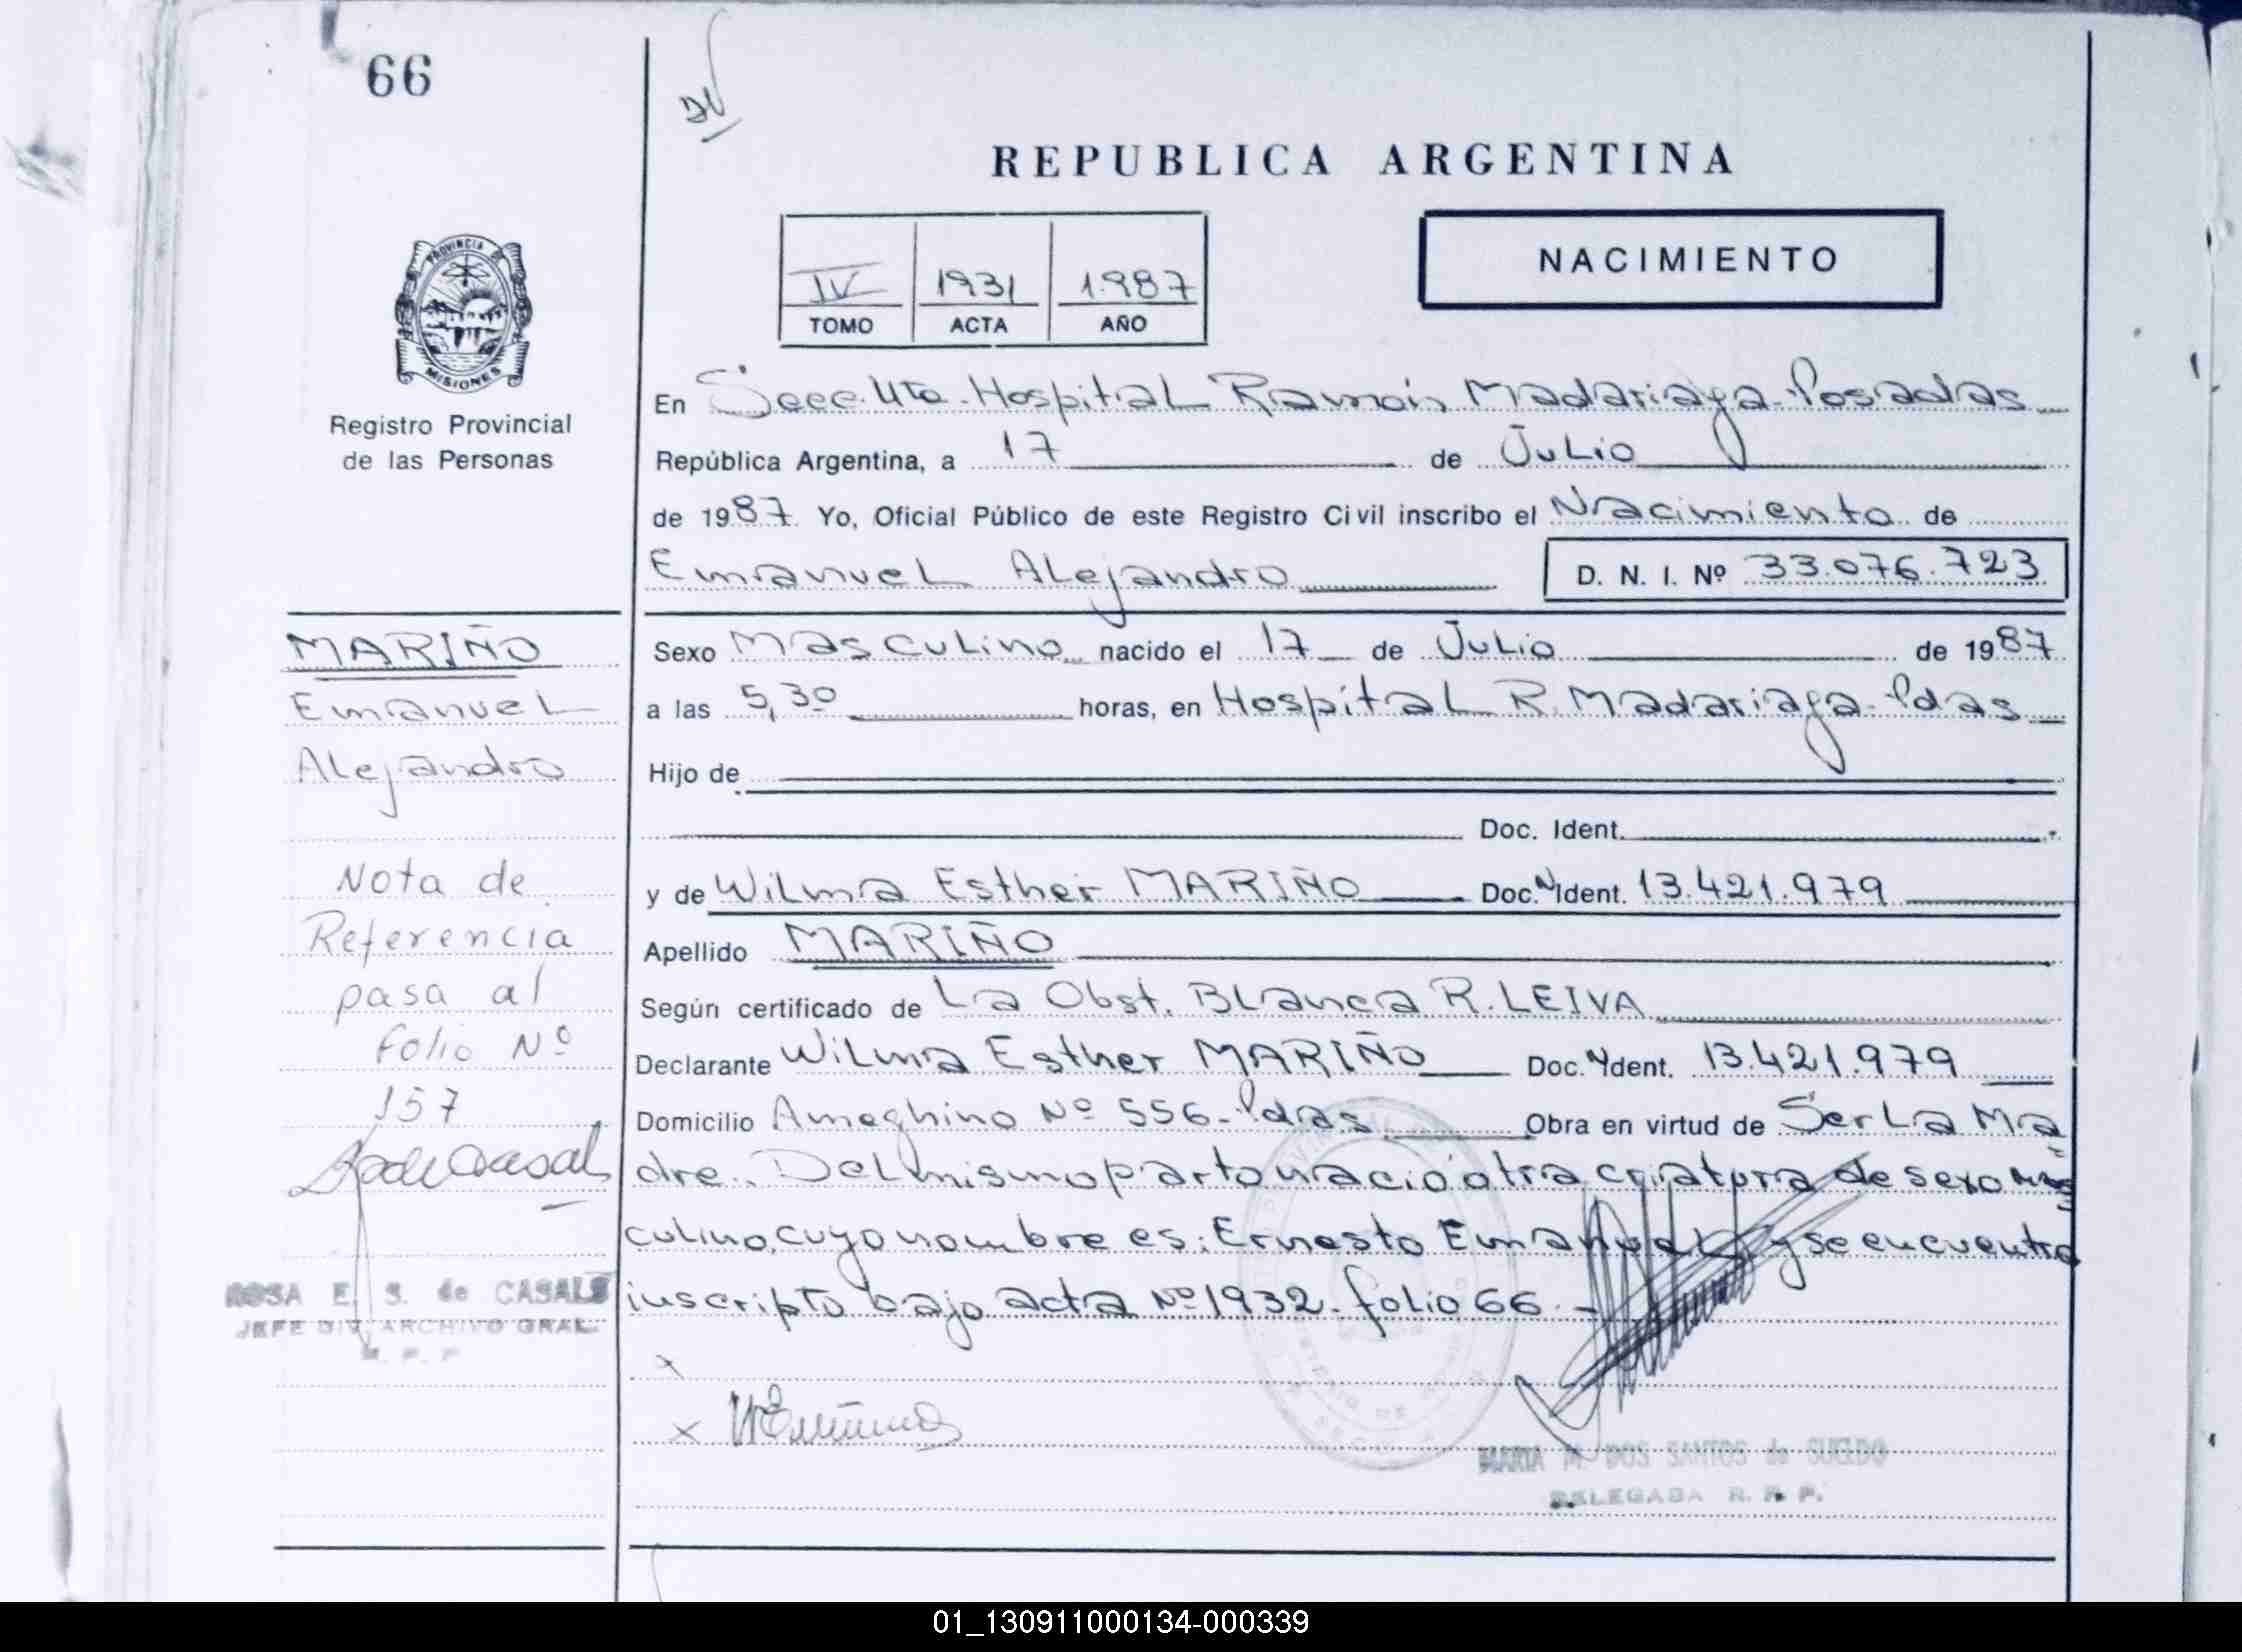 66
REPUBLICA ARGENTINA
NACIMIENTO
IV 1931 1.987
TOMO ACTA AÑO
PROVINCIA DE
MISIONES
Registro Provincial
de las Personas
En Secc. 4ta. Hospital Ramón Madariaga - Posadas
República Argentina, a 17 de Julio
de 1987. Yo, Oficial Público de este Registro Civil inscribo el Nacimiento de
Emanuel Alejandro D. N. I. Nº 33.076.723
MARIÑO
Emanuel
Alejandro
Nota de
Referencia
pasa al
folio Nº
157
ROSA E. S. de CASALS
JEFE DIV. ARCHIVO GRAL.
R. P. P
Sexo Masculino nacido el 17 de Julio de 1987
a las 5,30 horas, en Hospital R. Madariaga - Pdas
Hijo de
Doc. Ident.
y de Wilma Esther MARIÑO Doc. Ident. 13.421.979
Apellido MARIÑO
Según certificado de La Obst. Blanca R. LEIVA
Declarante Wilma Esther MARIÑO Doc. Ident. 13.421.979
Domicilio Ameghino Nº 556 - Pdas Obra en virtud de Ser La Ma
dre. Del mismo parto nació otra criatura de sexo mas
culino, cuyo nombre es: Ernesto Emanuel y se encuentra
inscripto bajo acta Nº 1932 - folio 66 -
x
x
MARIA M. DOS SANTOS de SUELDO
DELEGADA R. P. P.
01_130911000134-000339